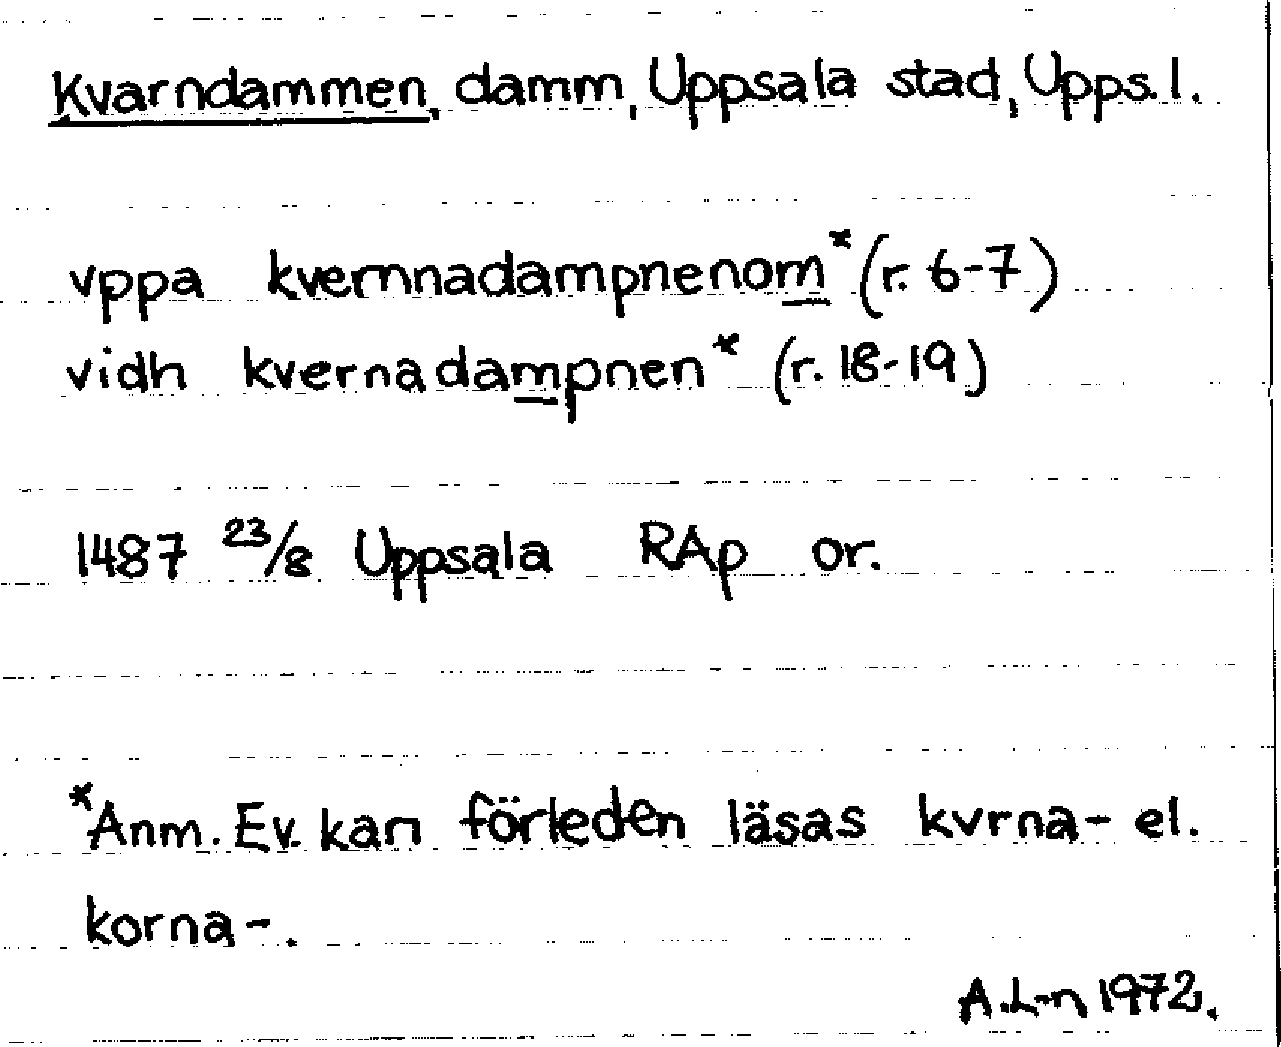 Kvarndammen, damm, Uppsala stad, Upps.l.
vppa kvernnadampnenom* (r. 6-7)
vidh kvernadampnen* (r. 18-19)
1487 23/8 Uppsala RAp or.
*Anm. Ev. kan förleden läsas kvrna- el.
korna-.
A.L-n 1972.